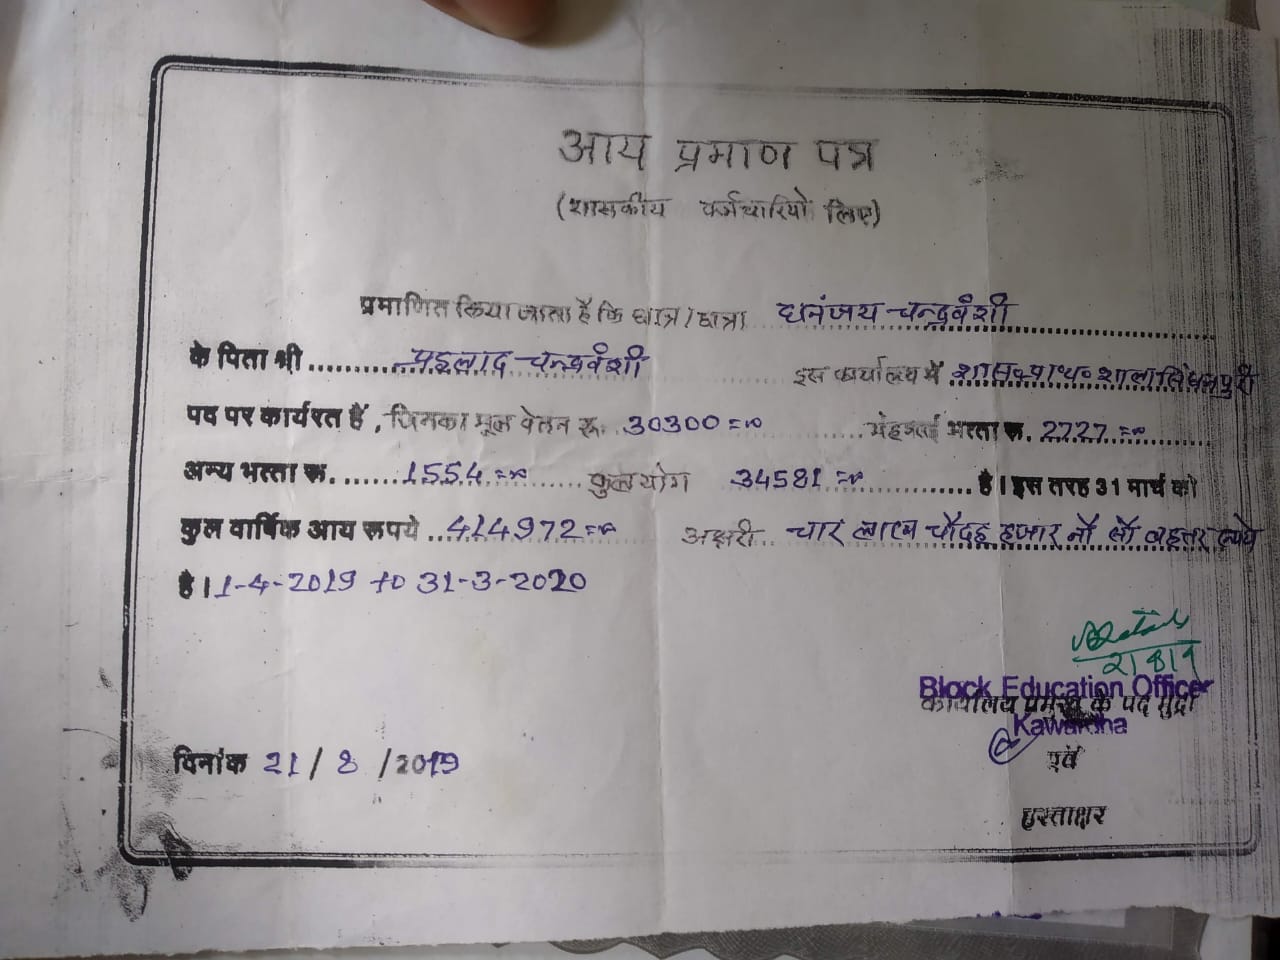 आय प्रमाण पत्र
(शासकीय कर्मचारियो लिए)
प्रमाणित किया जाता है कि छात्र/छात्रा धनंजय चन्द्रवंशी
के पिता श्री प्रहलाद चन्द्रवंशी इस कार्यालय में शास. प्रा. शाला
पद पर कार्यरत हैं, जिनका मूल वेतन रू. 30300= मंहगाई भत्ता रू. 2727=
अन्य भत्ता रू. 1554= कुल योग 34581= है। इस तरह 31 मार्च को
कुल वार्षिक आय रूपये 414972= अक्षरी चार लाख चौदह हजार नौ सौ बहत्तर रूपये
है। 1-4-2019 to 31-3-2020
21/8/19
Block Education Officer
कार्यालय प्रमुख के पद मुद्रा
Kawardha
एवं
दिनांक 21/8/2019
हस्ताक्षर